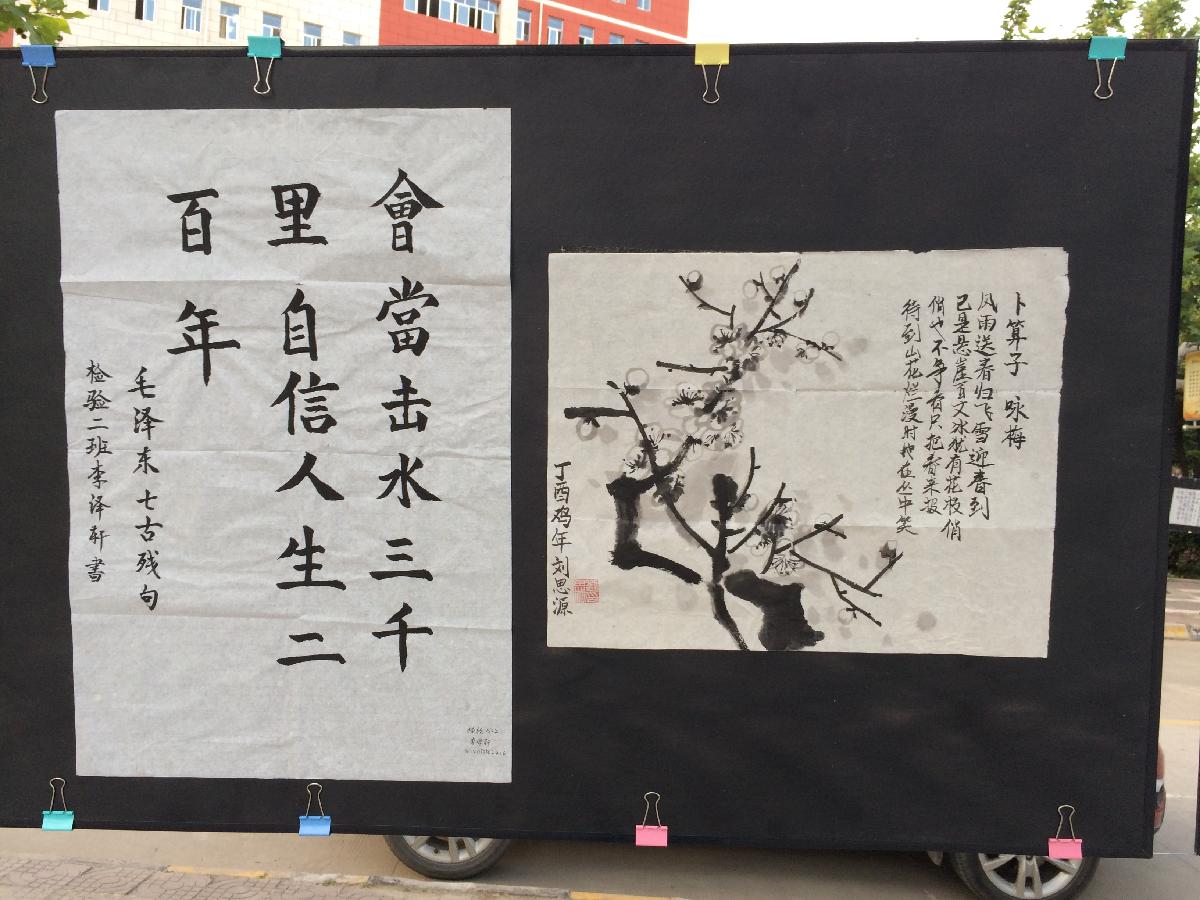 會當击水三千
里自信人生二
百年
毛泽东七古残句
检验二班李泽轩書
卜算子 咏梅
风雨送春归飞雪迎春到
已是悬崖百丈冰犹有花枝俏
俏也不争春只把春来报
待到山花烂漫时她在丛中笑
丁酉鸡年刘思源